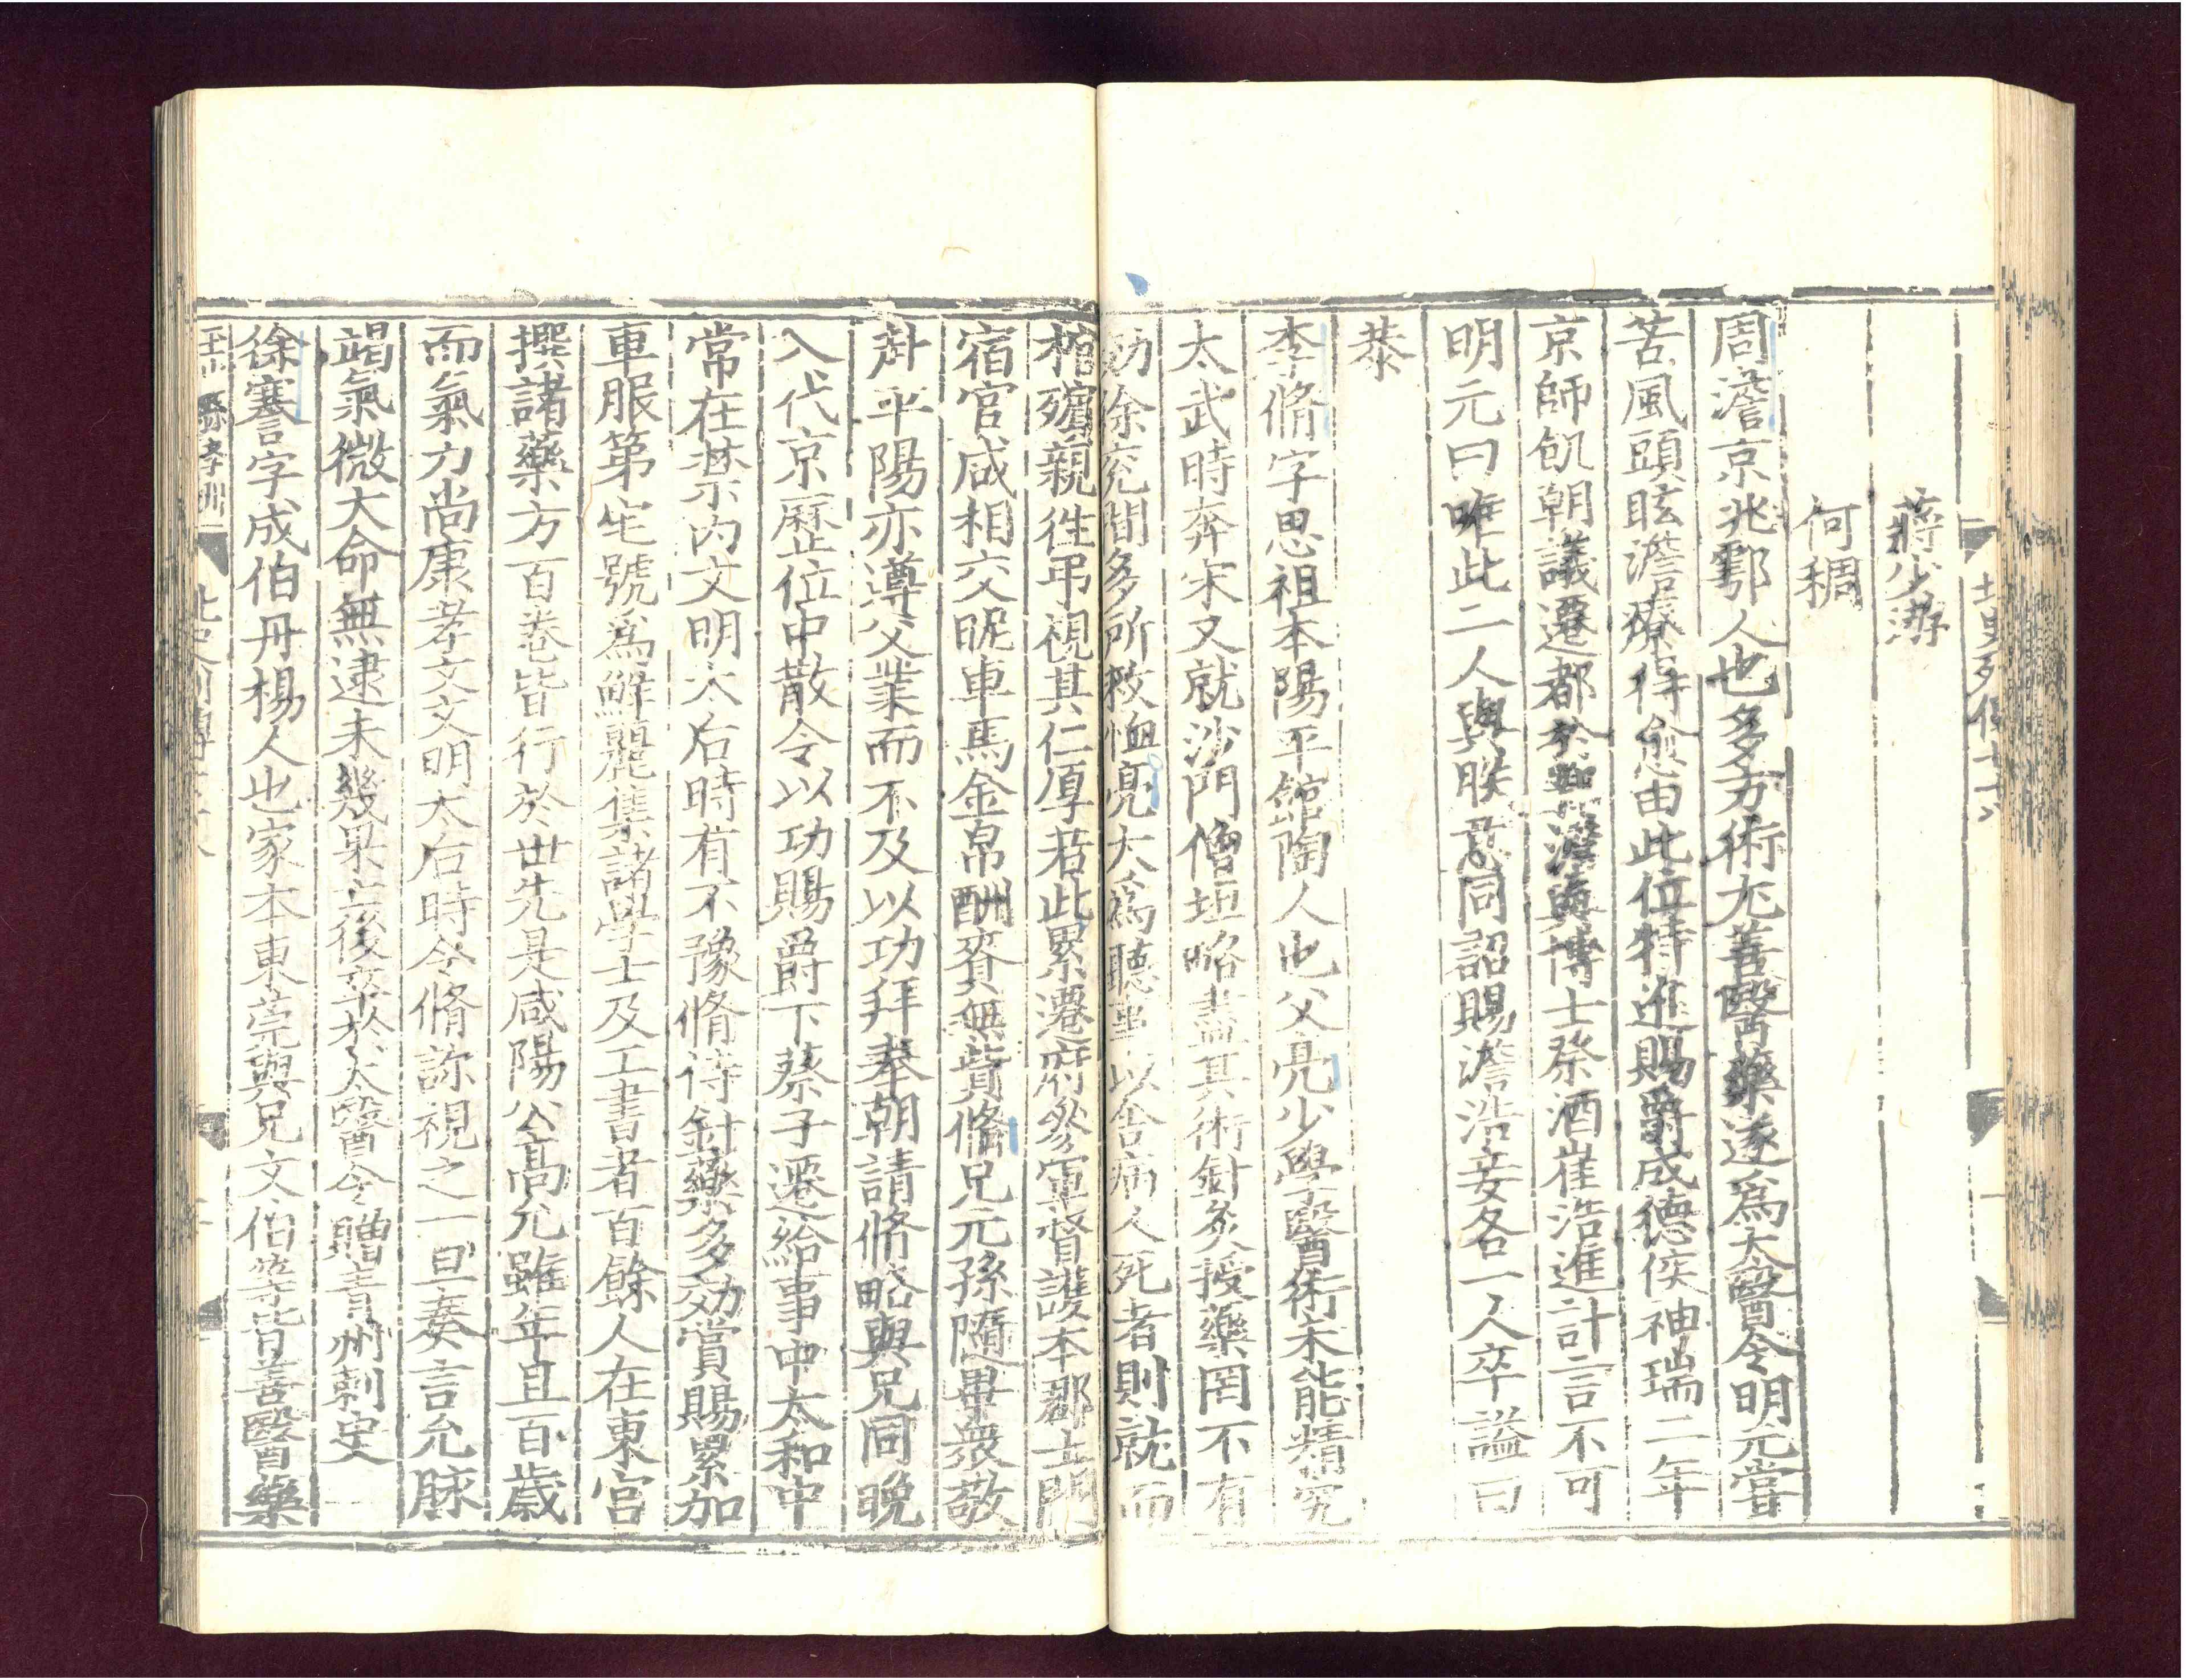 北史列傳七十八
蔣少游
何稠
周澹京兆鄠人也多方術尤善醫藥遂爲太醫令明元嘗
苦風頭眩澹療得愈由此位特進賜爵成德侯神瑞二年
京師飢朝議遷都於鄴澹與博士祭酒崔浩進計言不可
明元曰唯此二人與朕意同詔賜澹浩妾各一人卒謚曰
恭
李脩字思祖本陽平館陶人也父亮少學醫術未能精究
太武時奔宋又就沙門僧垣略盡其術針灸授藥罔不有
効徐兖間多所救恤亮大爲聽事以舍病人死者則就而
棺殯親徃弔視其仁厚若此累遷府參軍督護本郡士門
宿官咸相交昵車馬金帛酬賚無貲脩兄元孫隨畢衆敬
赴平陽亦遵父業而不及以功拜奉朝請脩略與兄同晚
入代京歷位中散令以功賜爵下蔡子遷給事中太和中
常在禁内文明太后時有不豫脩侍針藥多効賞賜累加
車服第宅號爲鮮麗集諸學士及工書者百餘人在東宮
撰諸藥方百卷皆行於世先是咸陽公高允雖年且百歲
而氣力尚康孝文文明太后時令脩診視之一旦奏言允脉
竭氣微大命無逮未幾果亡後卒於太醫令贈青州刺史
徐謇字成伯丹楊人也家本東莞與兄文伯等皆善醫藥